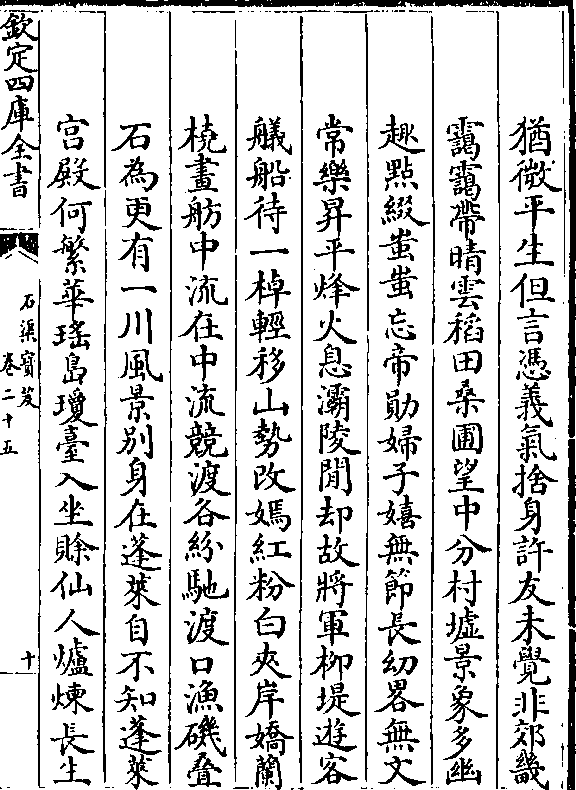 猶微平生但言憑義氣捨身許友未覺非郊畿
靄靄帶晴雲稻田桑圃望中分村墟景象多幽
趣點綴蚩蚩忘帝勛婦子嬉無節長幼畧無文
常樂昇平烽火息灞陵閒却故將軍柳堤遊客
艤船待一棹輕移山勢改嫣紅粉白夾岸嬌蘭
橈畫舫中流在中流競渡各紛馳渡口漁磯叠
石為更有一川風景别身在蓬萊自不知蓬萊
宫殿何繁華瑤島瓊臺入坐賖仙人爐煉長生
欽定四庫全書
石渠寳笈
卷二十五
十